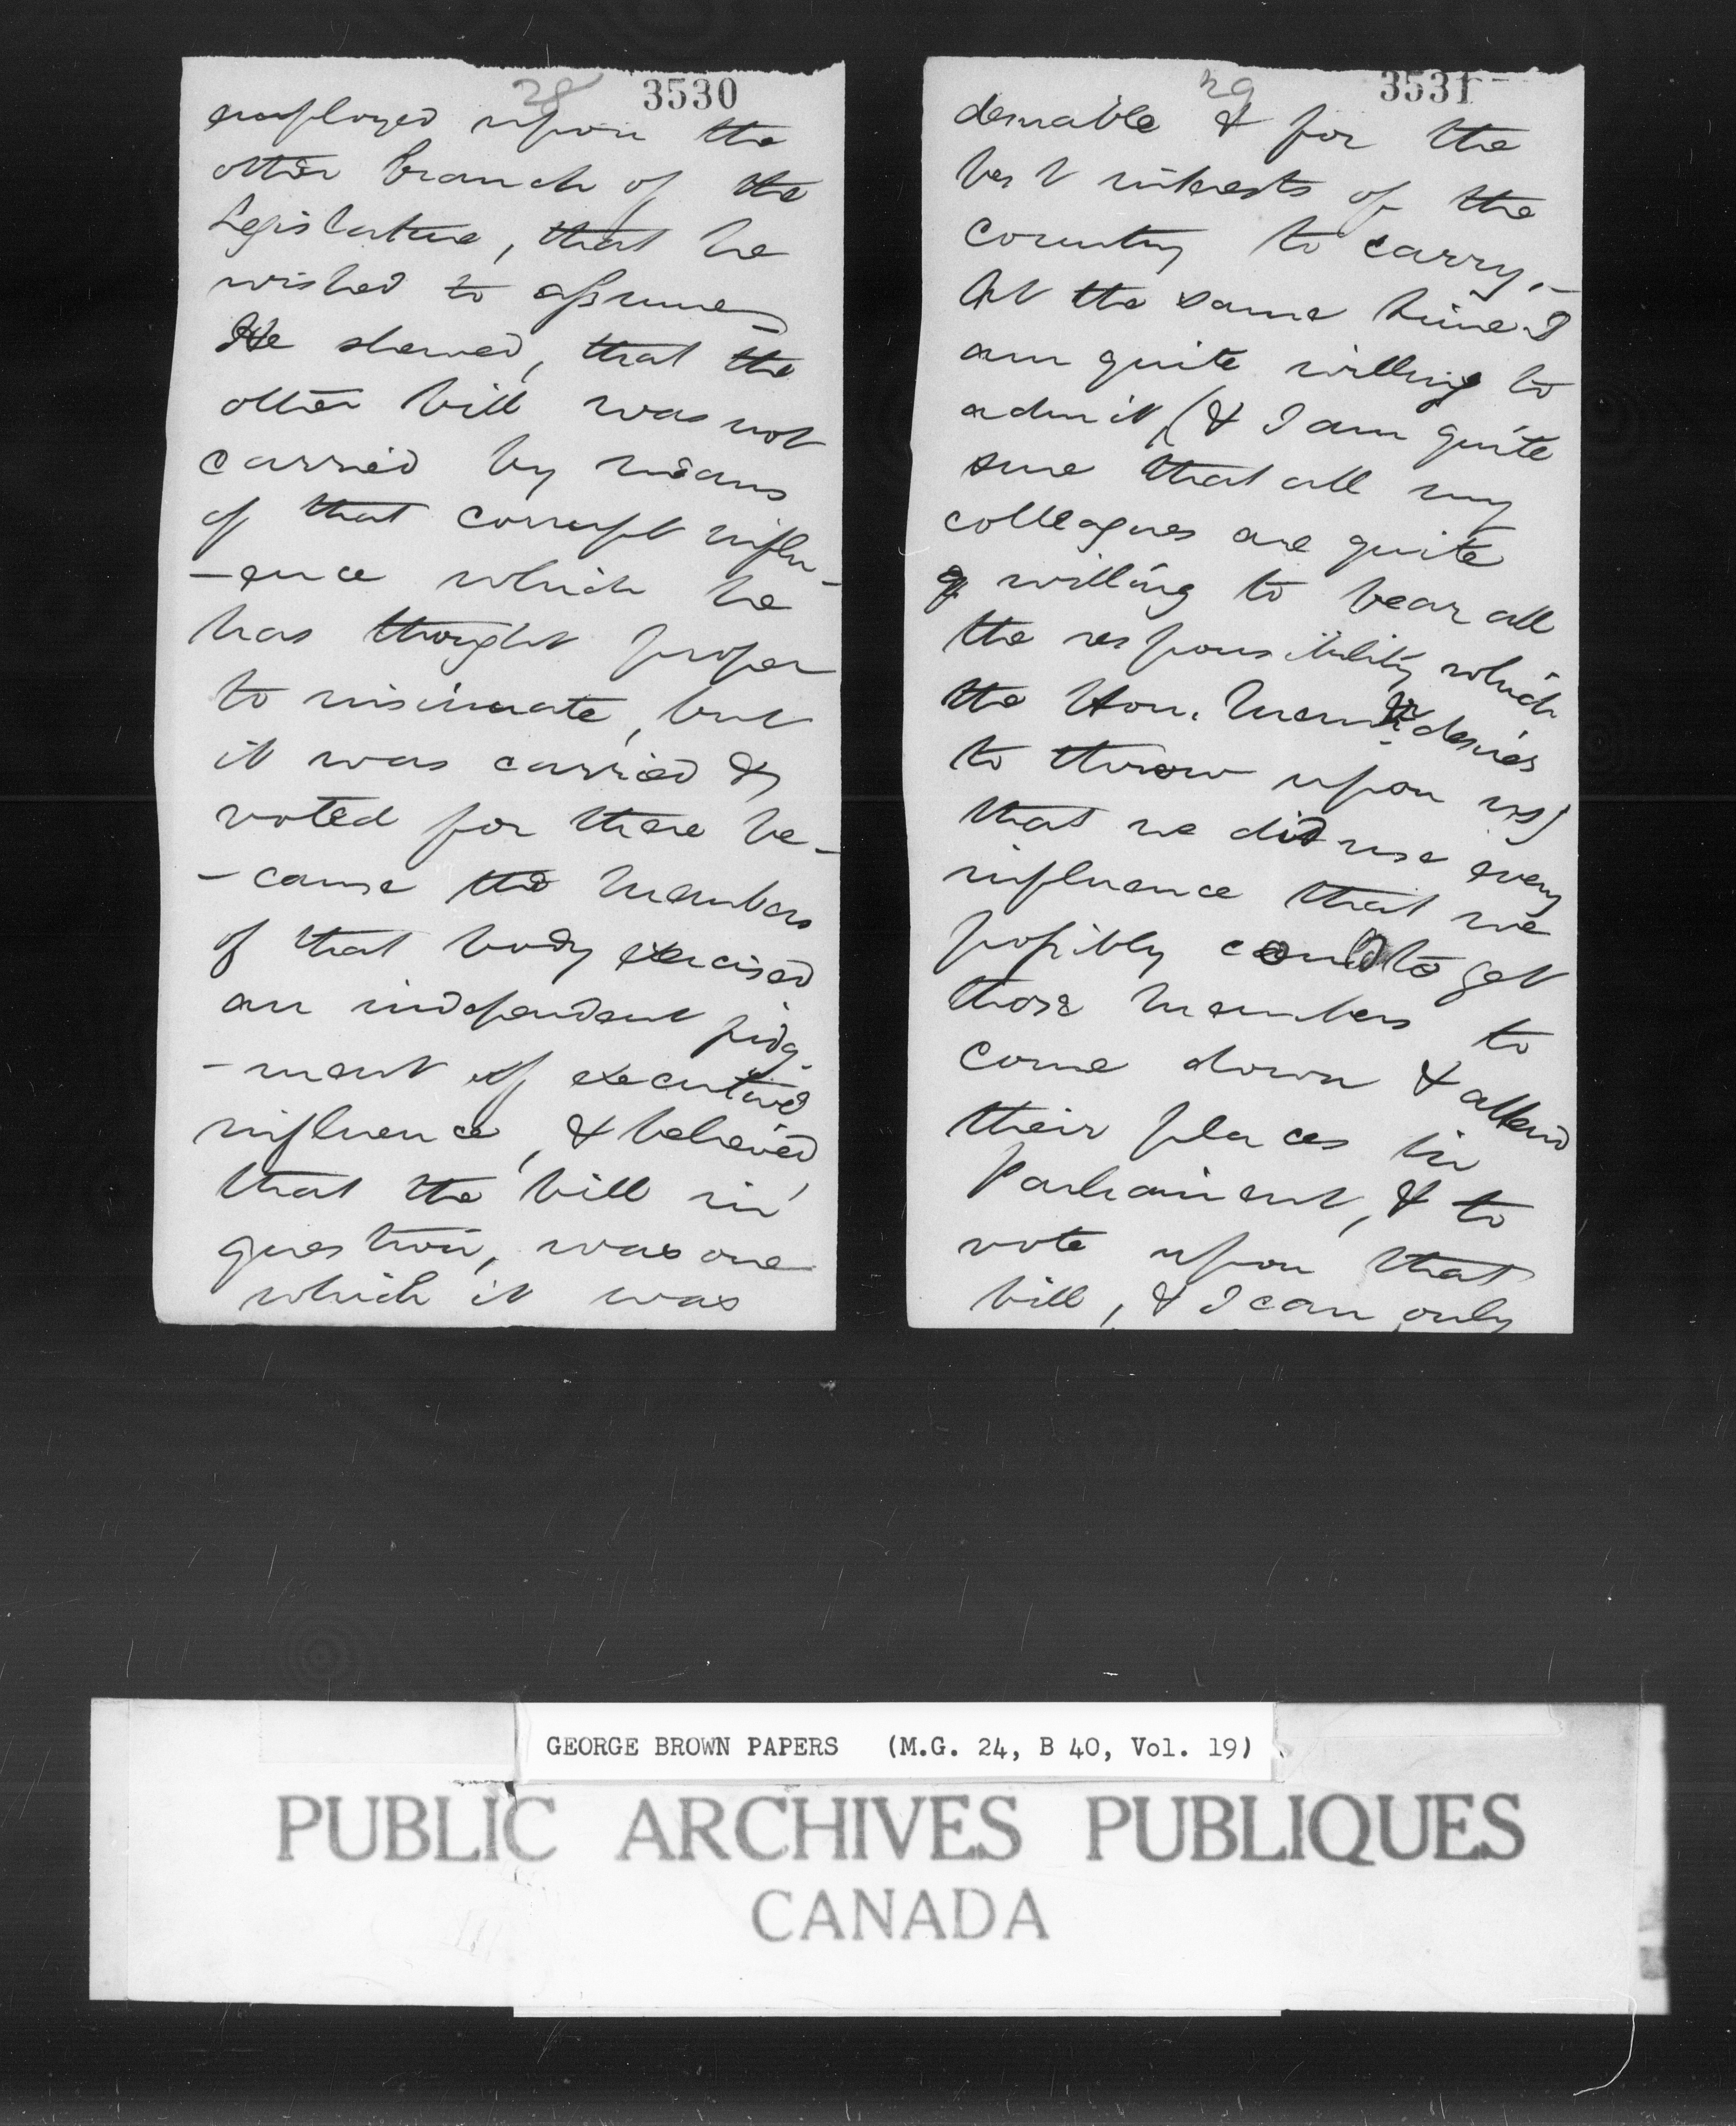 28 3530
employed upon the
other branch of the
Legislature, that he
wished to assume
He shewed, that the
other bill was not
carried by means
of that corrupt influ-
-ence which he
has thought proper
to insinuate, but
it was carried &
voted for there be-
-cause the Members
of that body exercised
an independent judg-
-ment of executive
influence, & believed
that the bill in
question, was one
which it was
29 3531
desirable & for the
best interests of the
country to carry.-
At the same time I
am quite willing to
admit, (& I am quite
sure that all my
colleagues are quite
willing to bear all
the responsibility which
the Hon. Member desires
to throw upon us)
that we did use every
influence that we
possibly could to get
those Members to
come down & attend
their places in
Parliament, & to
vote upon that
bill, & I can only
GEORGE BROWN PAPERS (M.G. 24, B 40, Vol. 19)
PUBLIC ARCHIVES PUBLIQUES
CANADA